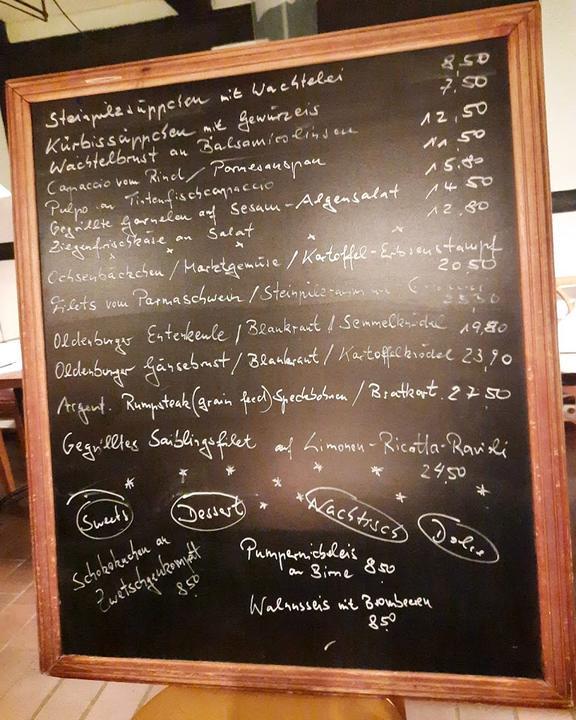 Steinpilzsüppchen mit Wachtelei 8,50
Kürbissüppchen mit Gewürzeis 7,50
Wachtelbrust an Balsamicolinsen 12,50
Capaccio vom Rind / Parmesanspan 11,50
Pulpo an Tintenfischcapaccio 15.80
Gegrillte Garnelen auf Sesam-Algensalat 14,50
Ziegenfrischkäse an Salat 12,80
Ochsenbäckchen / Marktgemüse / Kartoffel-Erbsenstampf
20,50
Filets vom Parmaschwein / Steinpilzrahm
Oldenburger Entenkeule / Blaukraut / Semmelknödel 19,80
Oldenburger Gänsebrust / Blaukraut / Kartoffelknödel 23,90
Argent. Rumpsteak (grain feed) Speckbohnen / Bratkart. 27,50
Gegrilltes Saiblingsfilet auf Limonen-Ricotta-Ravioli
24,50
Sweets Dessert Nachtisch Dolce
Schokokuchen an
Zwetschgenkompott
8,50
Pumpernickeleis
an Birne 8,50
Walnusseis mit Brombeeren
8,50